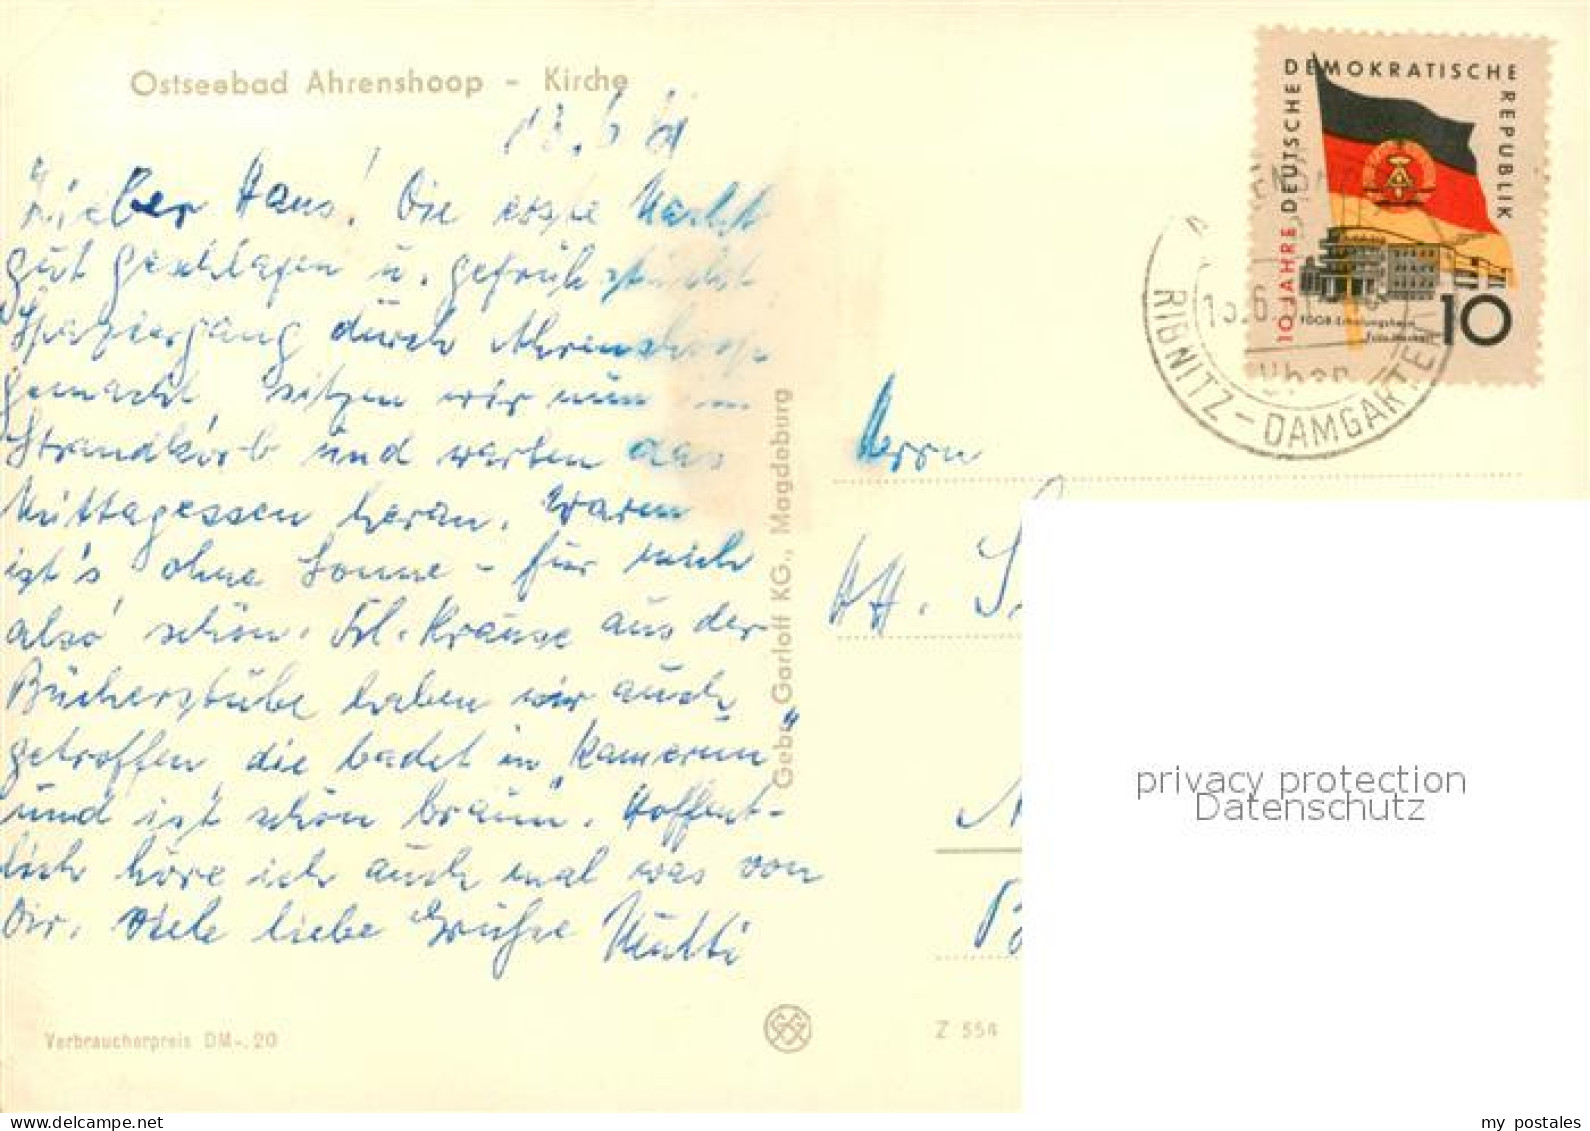 Ostseebad Ahrenshoop - Kirche
13.6.61
Lieber Hans! Die erste Nacht
gut geschlafen u. gefrühstückt
Spaziergang durch Ahrenshoop
gemacht, sitzen wir nun im
Strandkorb und warten das
Mittagessen heran. Warm
ist's ohne Sonne - für mich
also schön. Frl. Krause aus der
Bücherstube haben wir auch
getroffen die badet in „Kamerun“
und ist schön braun. Hoffent-
lich höre ich auch mal was von
Dir. Viele liebe Grüße Mutti
Verbraucherpreis DM-.20
Gebr. Garloff KG., Magdeburg
Z 554
10 JAHRE DEUTSCHE
DEMOKRATISCHE
REPUBLIK
FDGB-Erholungsheim
10
über
RIBNITZ-DAMGARTEN
Herrn
privacy protection
Datenschutz
my postales